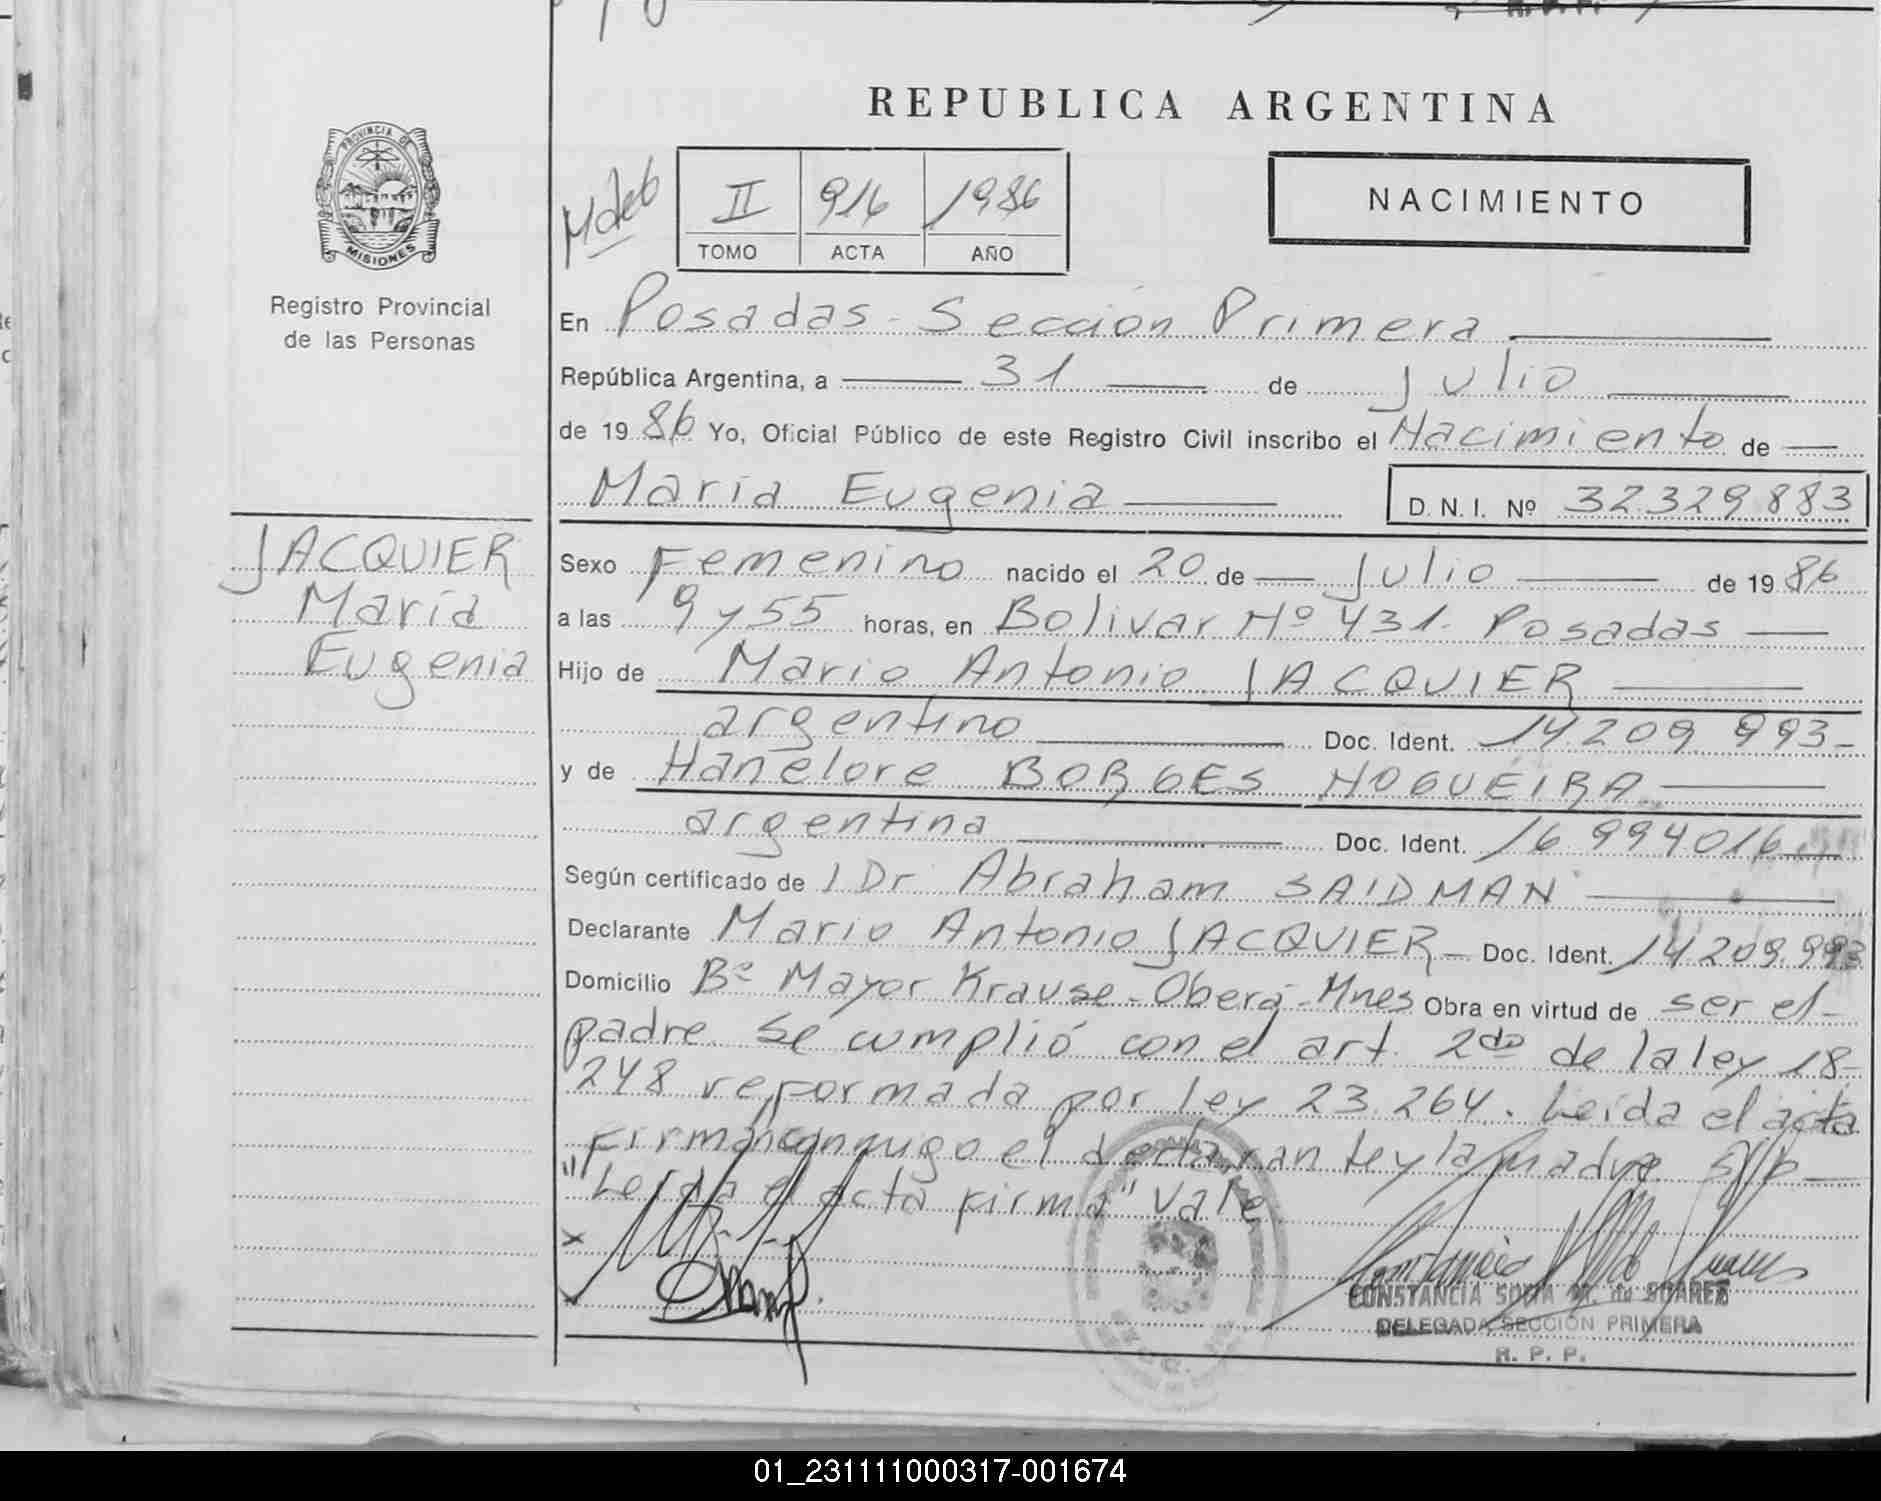 REPUBLICA ARGENTINA
PROVINCIA DE
MISIONES
Registro Provincial
de las Personas
II 916 1986
TOMO ACTA AÑO
NACIMIENTO
En Posadas - Sección Primera
República Argentina, a 31 de Julio
de 1986 Yo, Oficial Público de este Registro Civil inscribo el Nacimiento de
María Eugenia D.N.I. Nº 32329883
JACQUIER
María
Eugenia
Sexo Femenino nacido el 20 de Julio de 1986
a las 9 y 55 horas, en Bolivar Nº 431. Posadas
Hijo de Mario Antonio JACQUIER
argentino Doc. Ident. 14209993-
y de Hanelore BORGES NOGUEIRA
argentina Doc. Ident. 16994016
Según certificado de 1 Dr Abraham SAIDMAN
Declarante Mario Antonio JACQUIER - Doc. Ident. 14209.993
Domicilio Bº Mayor Krause - Oberá - Mnes Obra en virtud de ser el-
padre. Se cumplió con el art. 2do de la ley 18-
248 reformada por ley 23.264. Leida el acta
firman conmigo el declarante y la madre. S/b
"Leida el acta firma" Vale
CONSTANCIA SOFIA M. de SUAREZ
DELEGADA SECCIÓN PRIMERA
R. P. P.
01_231111000317-001674